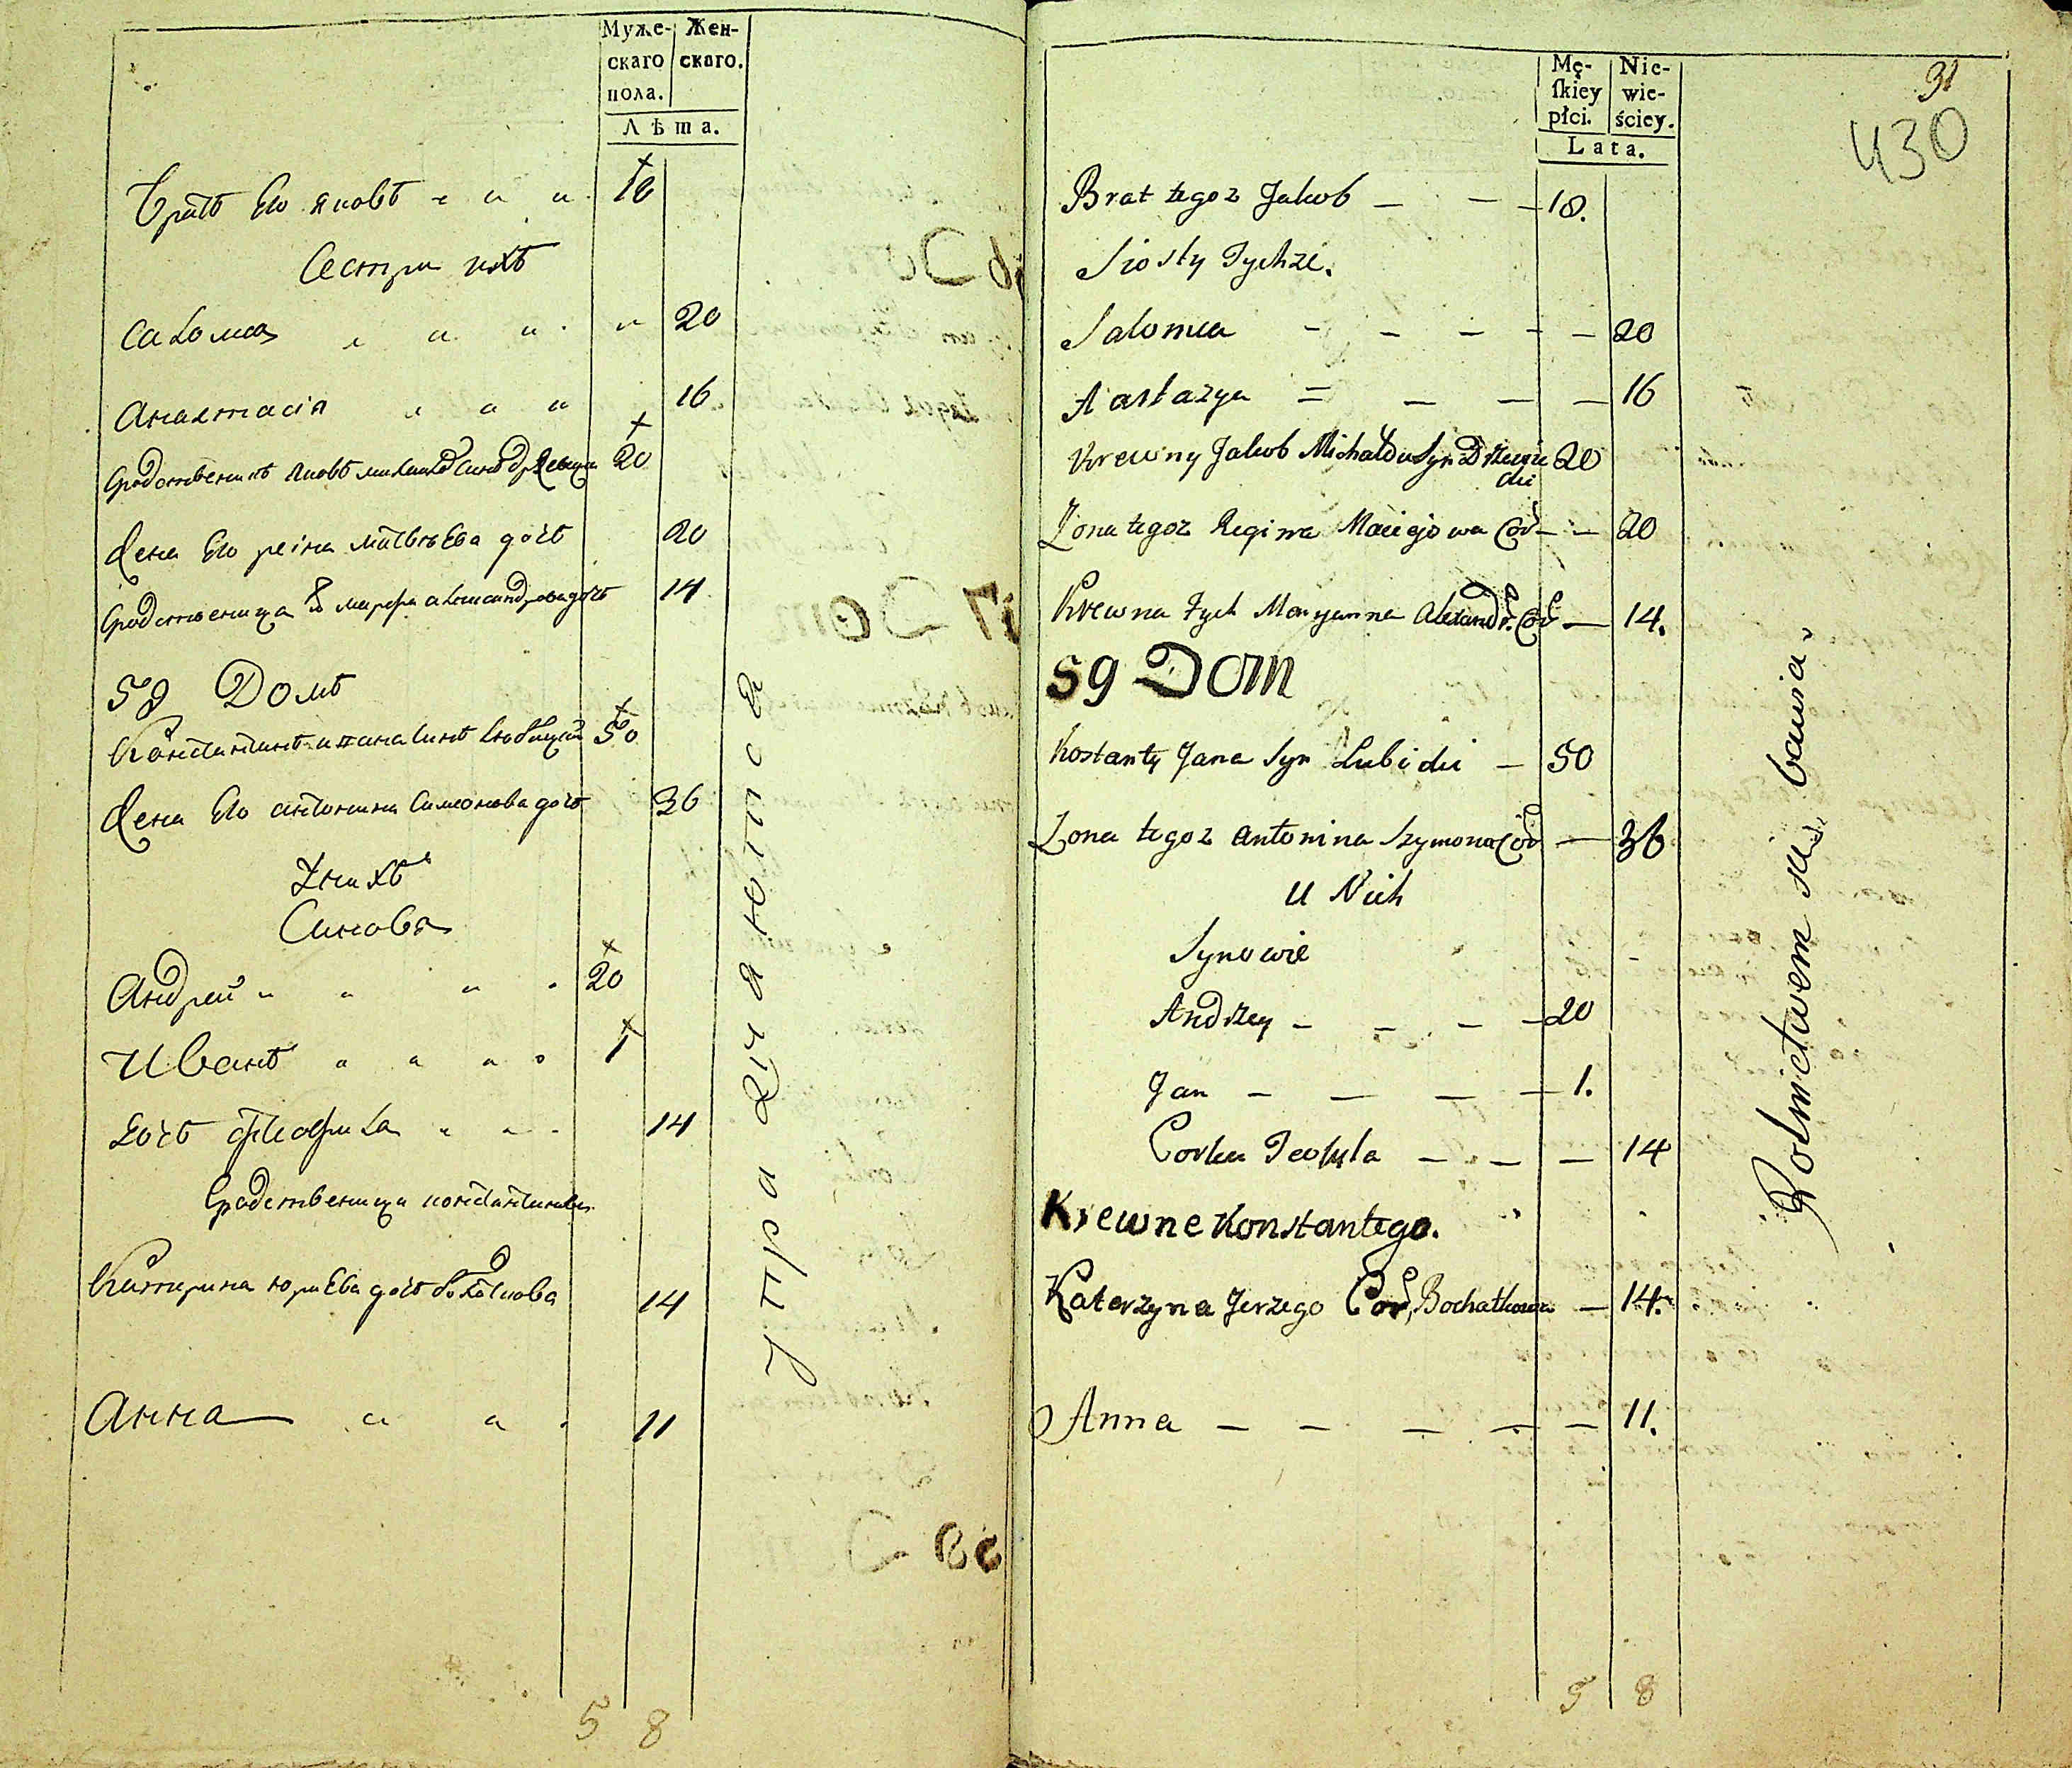 Муже- Жен-
скаго ского.
пола.
Лѣта.
братъ Его яковъ 18
Сестри ихъ
Саломея 20
Анастасія 16
Сродственикъ яковъ михаила Синъ 20
Жена Его реина матвѣЕва дочь 20
Сродственица марфа александрова дочь 14
59 Домъ
Константинъ ивана Синъ Любицкій 50
Жена Его антонина Симонова дочь 36
У нихъ
Синовя
Андрей 20
Иванъ 1
Дочь феофила 14
Сродственица константина
Катерина юриЕва дочь 14
Анна 11
упра жняются
5 8
Mę- Nie-
skiey wie-
płci. ściey.
Lata.
31
430
Brat tegoz Jakob 18.
Siosty Tychze.
Salomea 20
Nastazya 16
Krewny Jakob Michała Syn 20
Zona tegoz Regina Maciejowa Cór 20
Krewna Tych Maryanna Alexandr. Cór 14.
59 Dom
Kostanty Jana Syn Lubicki 50
Zona tegoz Antonina Szymona Cór 36
U Nich
Synowie
Andrzey 20
Jan 1.
Corka Teofila 14
Krewne Konstantego.
Katerzyna Jerzego Cor, Bochatkowa 14.
Anna 11.
Rolnictwem się bawia.
5 8